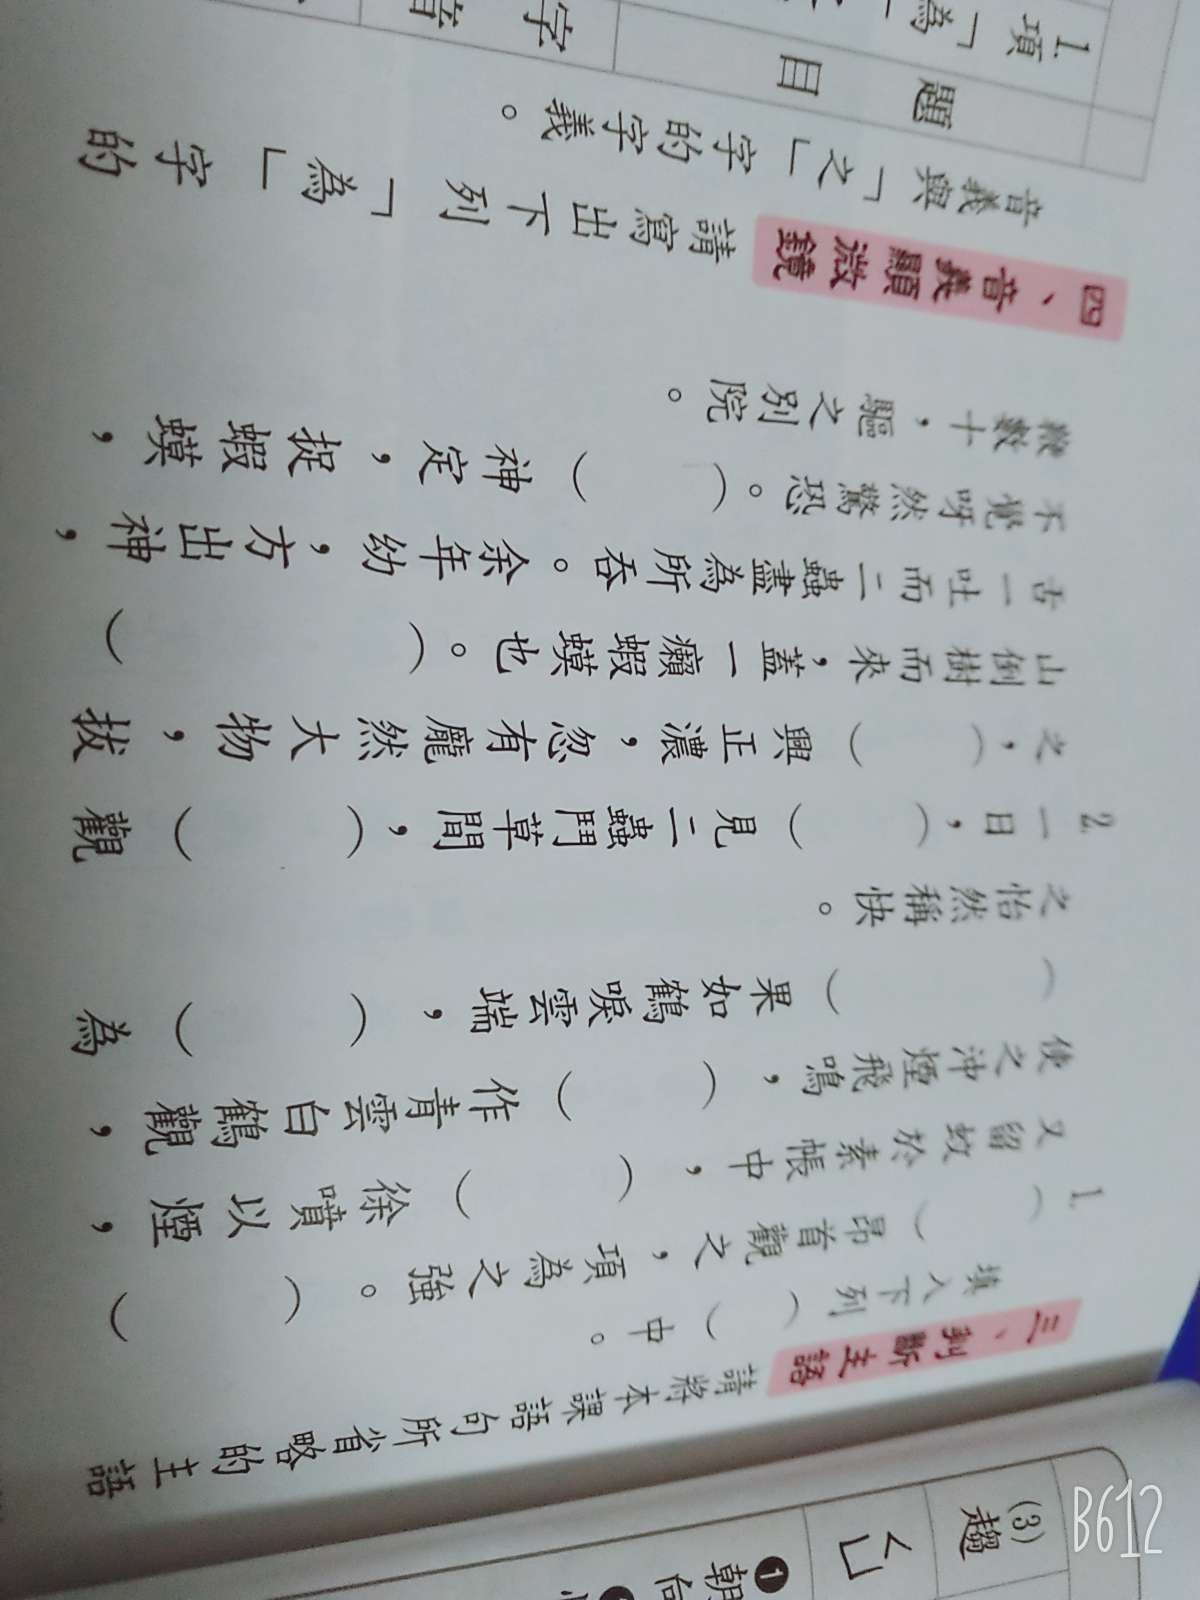 (3)
趨
ㄑㄩ
❶朝向
三、判斷主語 請將本課語句所省略的主語
填入下列（ ）中。
1.（ ）昂首觀之，項為之強。（ ）
又留蚊於素帳中，（ ）徐噴以煙，
使之沖煙飛鳴，（ ）作青雲白鶴觀，
（ ）果如鶴唳雲端，（ ）為
之怡然稱快。
2.一日，（ ）見二蟲鬥草間，（ ）觀
之，（ ）興正濃，忽有龐然大物，拔
山倒樹而來，蓋一癩蝦蟆也。（ ）
舌一吐而二蟲盡為所吞。余年幼，方出神，
不覺呀然驚恐。（ ）神定，捉蝦蟆，
鞭數十，驅之別院。
四、音義顯微鏡 請寫出下列「為」字的
音義與「之」字的字義。
題目
字音
1.項「為
B612